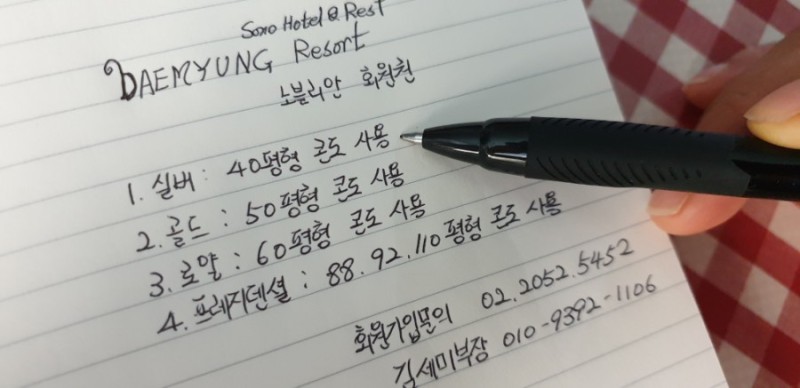 Sono Hotel & Rest
DAEMYUNG Resort
노블리안 회원권
1. 실버 : 40평형 콘도 사용
2. 골드 : 50평형 콘도 사용
3. 로얄 : 60평형 콘도 사용
4. 프레지덴셜 : 88.92.110평형 콘도 사용
회원가입문의 02.2052.5452
김세미부장 010-9392-1106